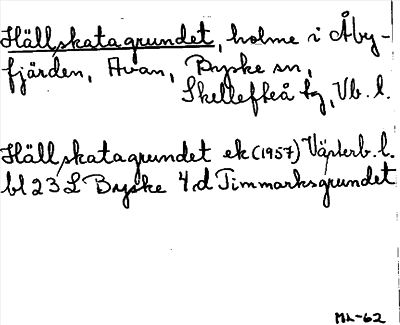 Hällskatagrundet, holme i Åby-
fjärden, Avan, Byske sn,
Skellefteå tg, Vb. l.
Hällskatagrundet ek (1957) Västerb. l.
bl 23 L Byske 4 d Timmarksgrundet
ML-62